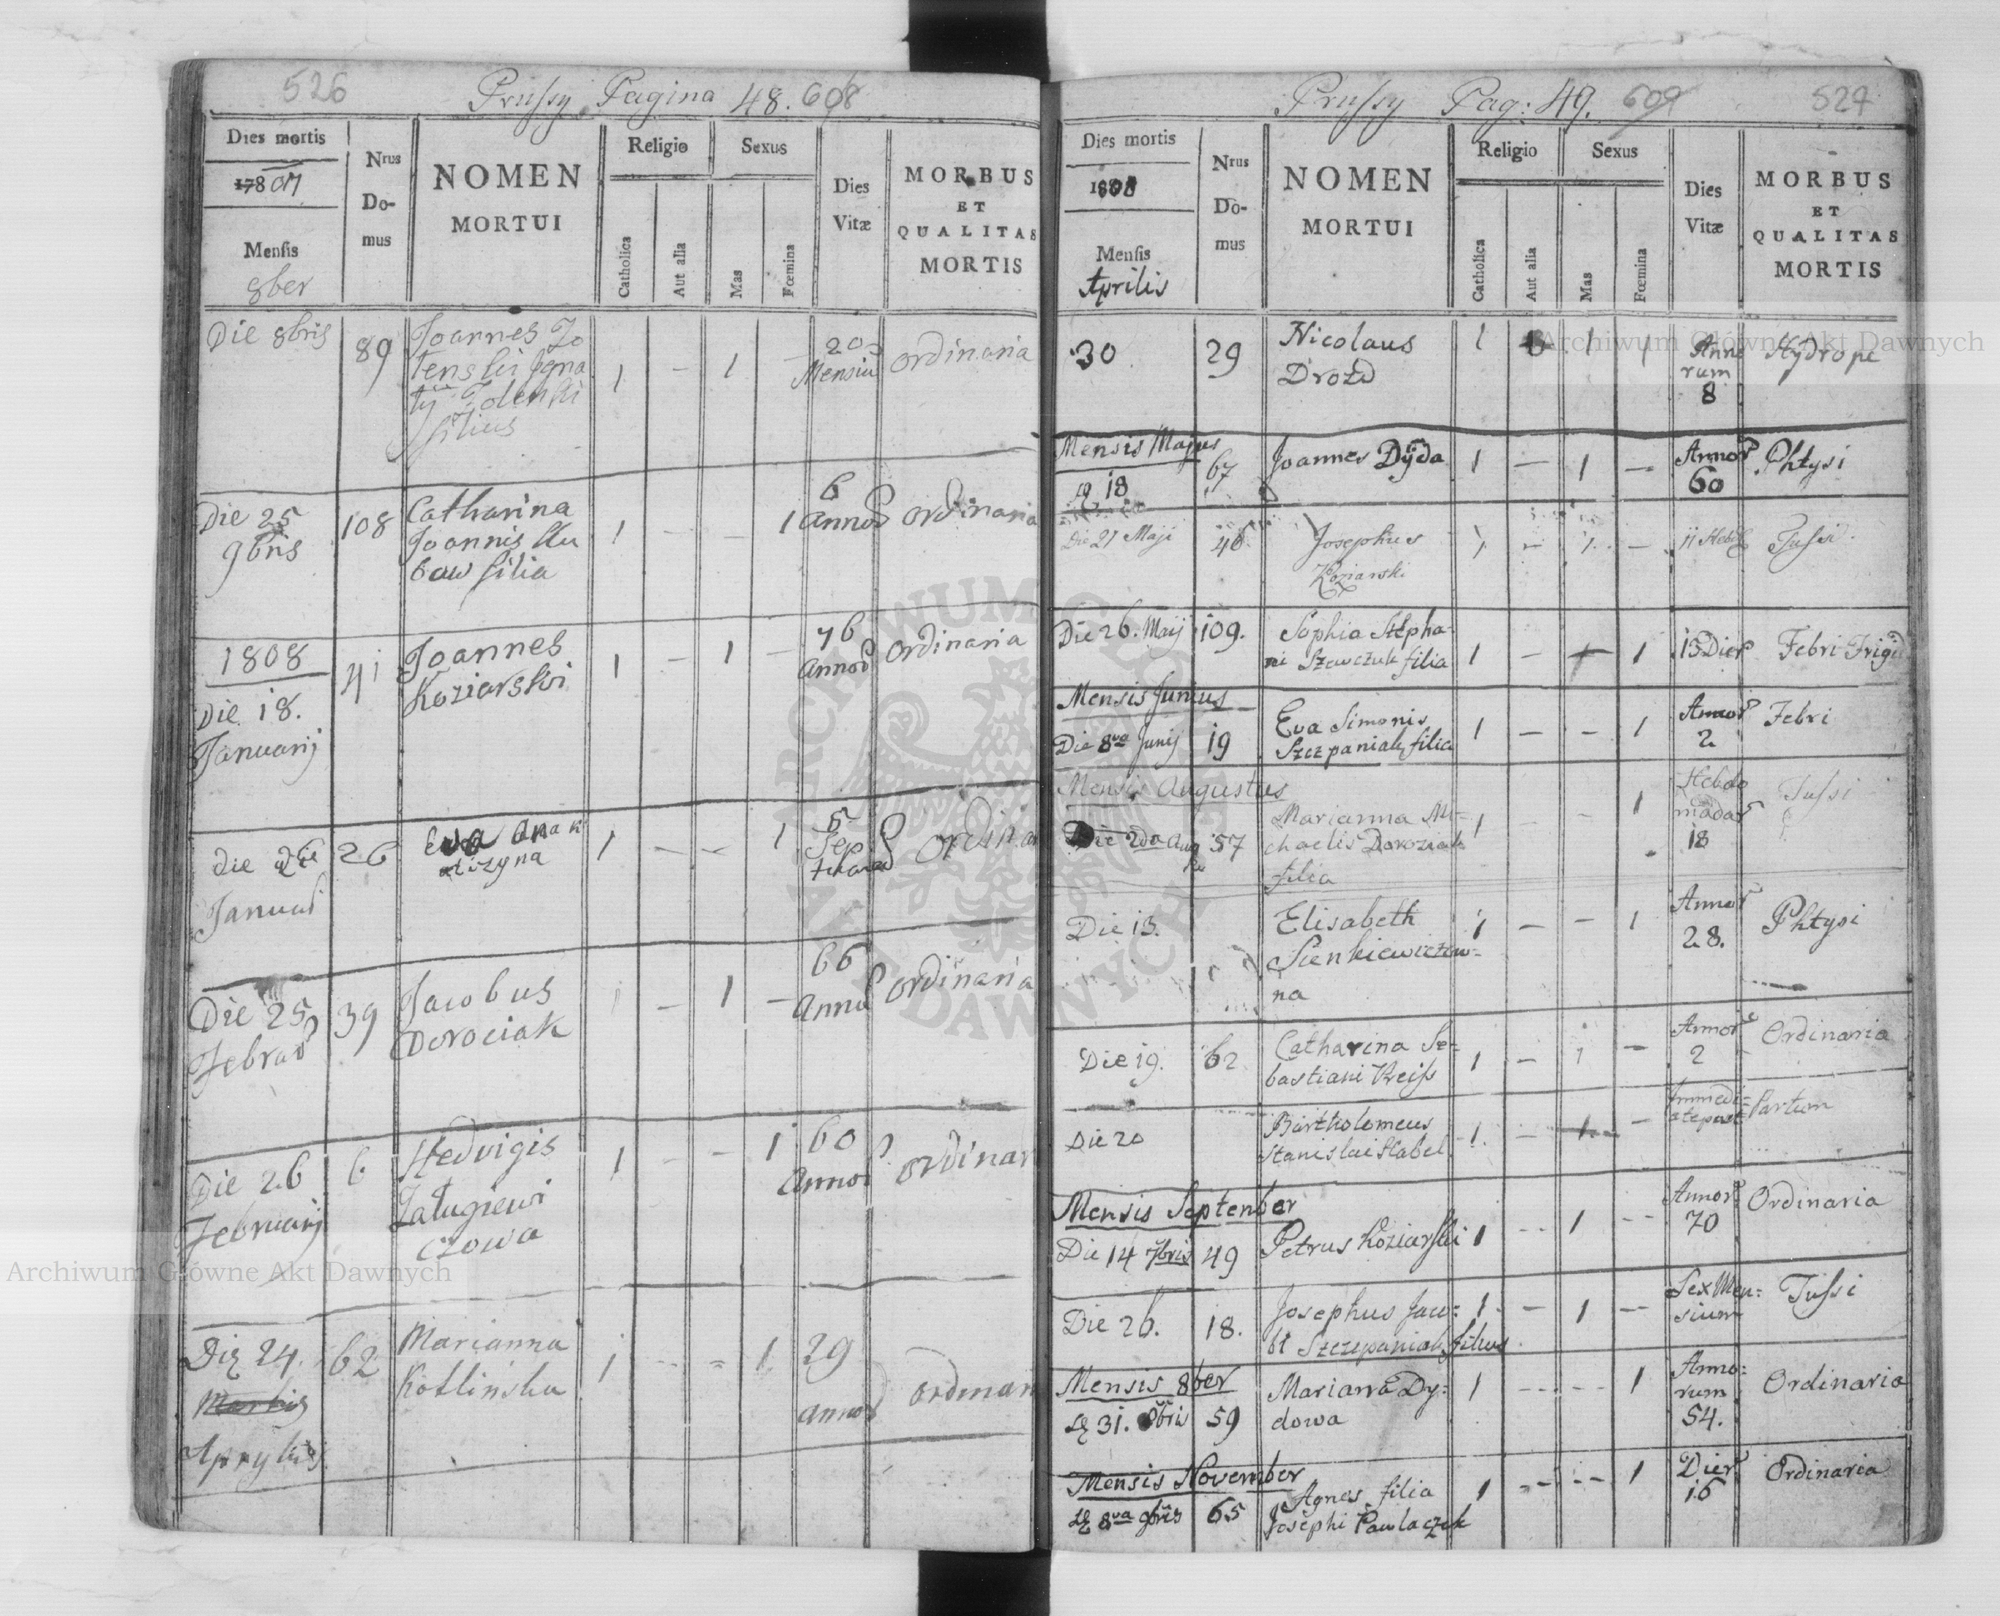 526
Prussy Pagina 48. 608
Dies mortis
1807
Mensis
8ber
Nrus
Do-
mus
NOMEN
MORTUI
Religio
Catholica
Aut alia
Sexus
Mas
Fœmina
Dies
Vitæ
MORBUS
ET
QUALITAS
MORTIS
Die 8bris 89 Joannes
filius
1 - 1 - 20
Mensiu
ordinaria
Die 25
9bris
108
Catharina
Joannis Ku
baw filia
1 - - 1 6
Annor
ordinaria
1808
Die 18.
Januarij
41
Joannes
Koziarski
1 - 1 - 76
Annor
ordinaria
die
Januar
26
Eva
1 - - 1 5
Sep
ordinar
Die 25
Februar
39
Jacobus
Dorociak
1 - 1 - 66
Annor
ordinaria
Die 26
Februarij
6
Hedvigis
Załugiewi
czowa
1 - - 1 60
Annor
ordinar
Die 24.
Martis
Aprylis
62
Marianna
Kotlinska
1 - - 1 29
Annor
ordinar
Prussy Pag: 49. 609
527
Dies mortis
1808
Mensis
Aprilis
Nrus
Do-
mus
NOMEN
MORTUI
Religio
Catholica
Aut alia
Sexus
Mas
Fœmina
Dies
Vitæ
MORBUS
ET
QUALITAS
MORTIS
30 29 Nicolaus
Drozd
1 1 1 Anno
rum
8
Hydrope
Mensis Majus
18 67 Joannes Dÿda 1 - 1 - Annor
60
Phtysi
Die 21 Maji 46 Josephus
Koziarski
1 - 1 - 11 Hebd Tussi
Die 26. Maij 109. Sophia Stepha-
ni Szewczuk filia
1 - 1 13 Dier Febri Frigid
Mensis Junius
Die 8va Junij 19 Eva Simonis
Szczepaniak filia
1 - - 1 Annor
2
Febri
Mensis Augustus
Die 2da Aug 57 Marianna Mi-
chaelis Doroziak
filia
1 - - 1 Hebdo
madar
18
Tussi
Die 13. Elisabeth
Sienkiewiczow-
na
1 - - 1 Annor
28.
Phtysi
Die 19. 62 Catharina Se-
bastiani Kreiss
1 - 1 - Annor
2
Ordinaria
Die 20 Bartholomeus
Stanislai Habel
1 - 1 - Immedi-
ate post
Partum
Mensis September
Die 14 7bris 49 Petrus Koziarski 1 - - 1 - - Annor
70
Ordinaria
Die 26. 18. Josephus Jaco-
bi Szczepaniak filius
1 - 1 - Sex Men-
sium
Tussi
Mensis 8ber
31. 8bris 59 Marianna Dy-
dowa
1 - - 1 Anno-
rum
54.
Ordinaria
Mensis November
8va 9bris 65 Agnes filia
Josephi Pawlaczek
1 - - 1 Dier
16
Ordinaria
Archiwum Główne Akt Dawnych
Archiwum Główne Akt Dawnych
ARCHIWUM GŁÓWNE AKT DAWNYCH